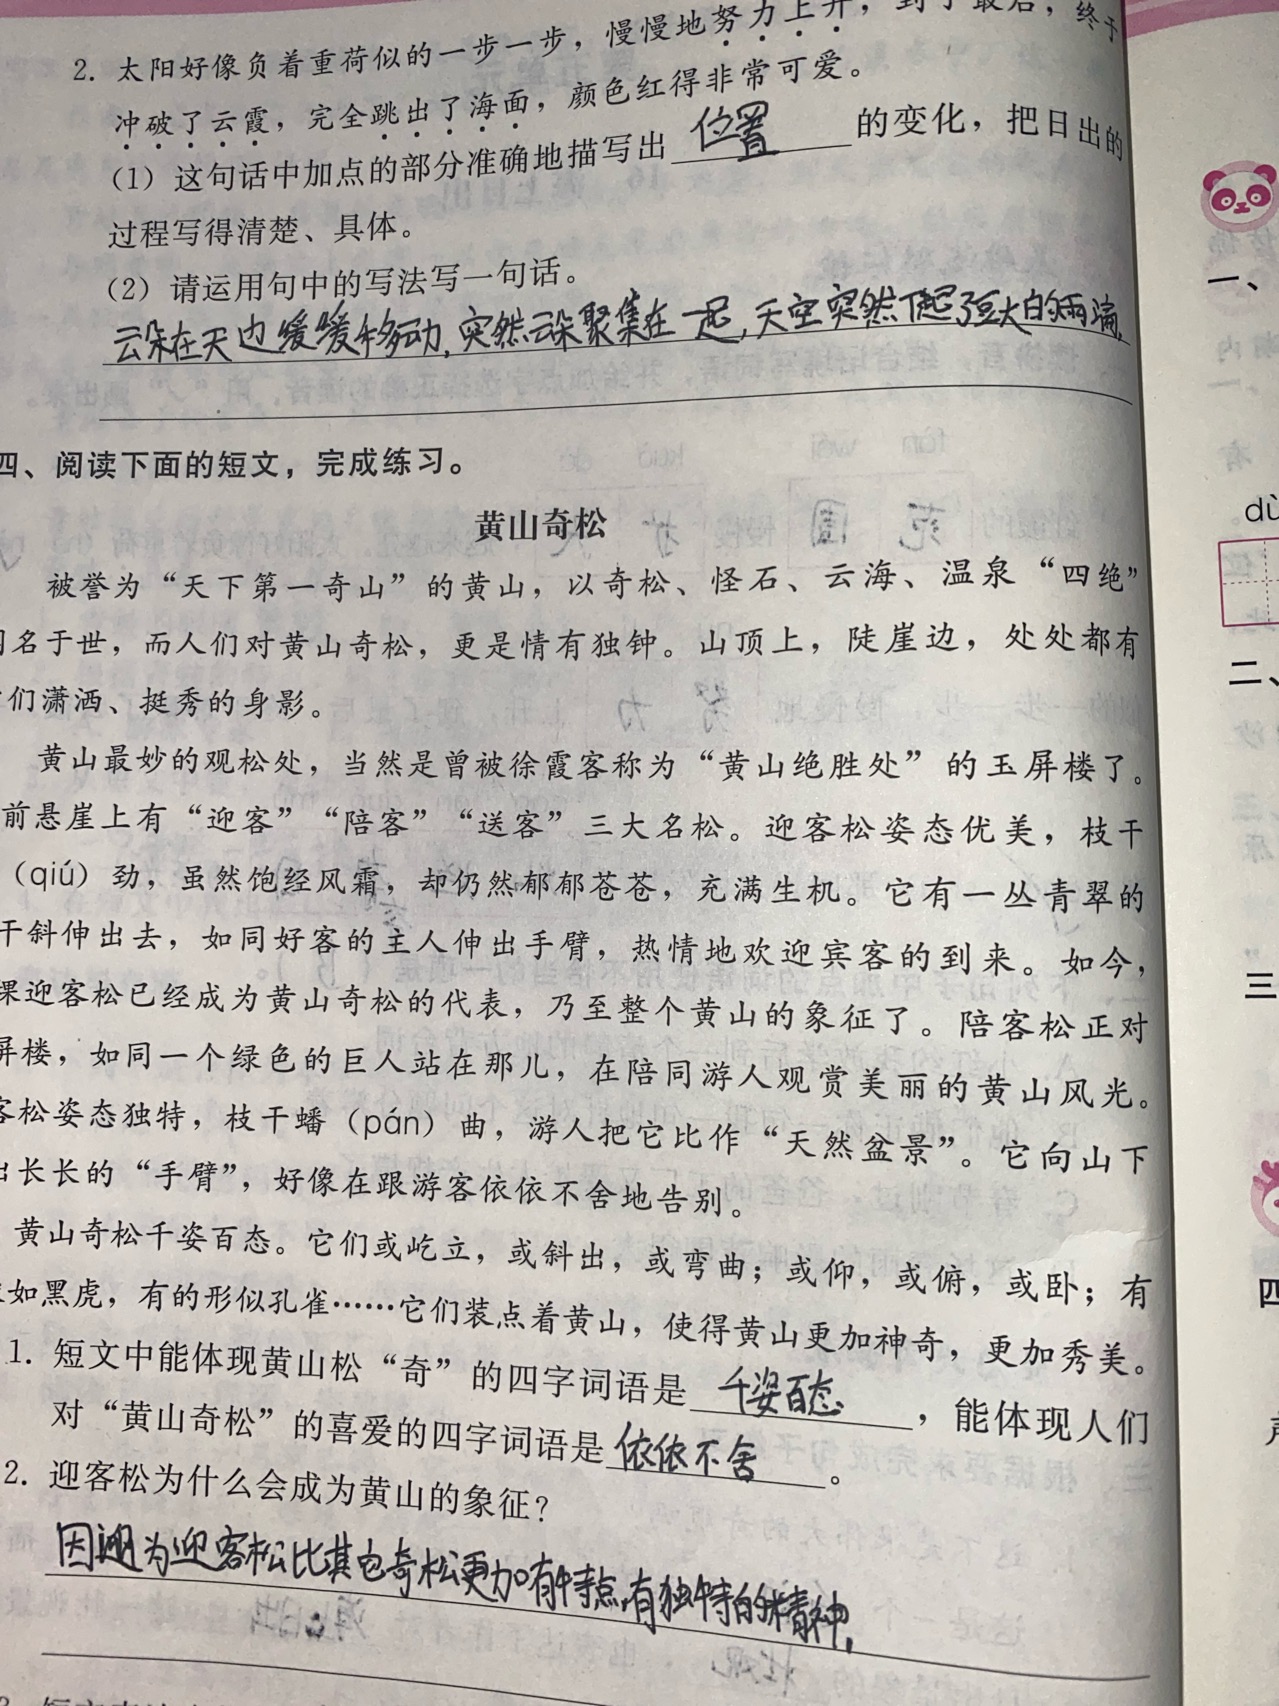 2. 太阳好像负着重荷似的一步一步，慢慢地努力上升，到了最后，终于
冲破了云霞，完全跳出了海面，颜色红得非常可爱。
（1）这句话中加点的部分准确地描写出 位置 的变化，把日出的
过程写得清楚、具体。
（2）请运用句中的写法写一句话。
云朵在天边缓缓移动，突然云朵聚集在一起，天空突然下起了豆大的雨滴。
四、阅读下面的短文，完成练习。
黄山奇松
被誉为“天下第一奇山”的黄山，以奇松、怪石、云海、温泉“四绝”
名于世，而人们对黄山奇松，更是情有独钟。山顶上，陡崖边，处处都有
们潇洒、挺秀的身影。
黄山最妙的观松处，当然是曾被徐霞客称为“黄山绝胜处”的玉屏楼了。
前悬崖上有“迎客”“陪客”“送客”三大名松。迎客松姿态优美，枝干
（qiú）劲，虽然饱经风霜，却仍然郁郁苍苍，充满生机。它有一丛青翠的
干斜伸出去，如同好客的主人伸出手臂，热情地欢迎宾客的到来。如今，
棵迎客松已经成为黄山奇松的代表，乃至整个黄山的象征了。陪客松正对
屏楼，如同一个绿色的巨人站在那儿，在陪同游人观赏美丽的黄山风光。
客松姿态独特，枝干蟠（pán）曲，游人把它比作“天然盆景”。它向山下
出长长的“手臂”，好像在跟游客依依不舍地告别。
黄山奇松千姿百态。它们或屹立，或斜出，或弯曲；或仰，或俯，或卧；有
如黑虎，有的形似孔雀……它们装点着黄山，使得黄山更加神奇，更加秀美。
1. 短文中能体现黄山松“奇”的四字词语是 千姿百态 ，能体现人们
对“黄山奇松”的喜爱的四字词语是 依依不舍 。
2. 迎客松为什么会成为黄山的象征？
因为迎客松比其它奇松更加有特点，有独特的精神。
一、
内
有
dù
二、
沙
三
四